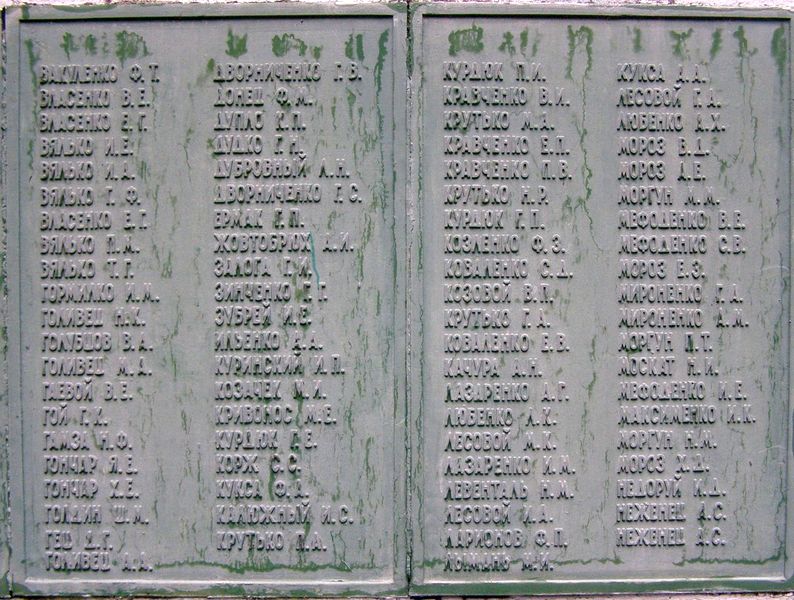 ВАКУЛЕНКО Ф. Т.
ВЛАСЕНКО В. Е.
ВЛАСЕНКО Е. Г.
ВЯЛЬКО И. Е.
ВЯЛЬКО И. А.
ВЯЛЬКО Г. Ф.
ВЛАСЕНКО Е. Г.
ВЯЛЬКО П. М.
ВЯЛЬКО Т. Г.
ГОРМИЛКО И. М.
ГОЛИВЕЦ Н. К.
ГОЛУБЦОВ В. А.
ГОЛИВЕЦ М. А.
ГАЕВОЙ В. Е.
ГОЙ Г. К.
ГАМЗА Н. Ф.
ГОНЧАР Я. Е.
ГОНЧАР Х. Е.
ГОЛДИН Ш. М.
ГЕЦ Д. Г.
ГОЛИВЕЦ А. А.
ДВОРНИЧЕНКО Г. В.
ДОНЕЦ Ф. М.
ДУПЛО К. П.
ДУДКО Г. Н.
ДУБРОВНЫЙ Л. Н.
ДВОРНИЧЕНКО Г. С.
ЕРМАК Г. П.
ЖОВТОБРЮХ А. И.
ЗАЛОГА Г. И.
ЗИНЧЕНКО Г.
ЗУБРЕЙ И. Е.
ИЛЬЕНКО А. А.
КУРИНСКИЙ И. П.
КОЗАЧЕК М. И.
КРИВОНОС М. Е.
КУРДЮК Г. Е.
КОРЖ С. С.
КУКСА Ф. А.
КАЛЮЖНЫЙ И. С.
КРУТЬКО П. А.
КУРДЮК П. И.
КРАВЧЕНКО В. И.
КРУТЬКО М. А.
КРАВЧЕНКО Е. П.
КРАВЧЕНКО П. В.
КРУТЬКО Н. Р.
КУРДЮК Г. П.
КОЗЛЕНКО Ф. З.
КОВАЛЕНКО С. Д.
КОЗОВОЙ В. П.
КРУТЬКО Г. А.
КОВАЛЕНКО Е. В.
КАЧУРА А. Н.
ЛАЗАРЕНКО А. Г.
ЛЮБЕНКО Л. Х.
ЛЕСОВОЙ М. К.
ЛАЗАРЕНКО И. М.
ЛЕВЕНТАЛЬ Н. М.
ЛЕСОВОЙ И. А.
ЛАРИОНОВ Ф. П.
М. И.
КУКСА Д. А.
ЛЕСОВОЙ Г. А.
ЛЮБЕНКО А. Х.
МОРОЗ В. Д.
МОРОЗ Д. Е.
МОРГУН М. М.
МЕФОДЕНКО В. Е.
МЕФОДЕНКО С. В.
МОРОЗ Е. З.
МИРОНЕНКО Г. А.
МИРОНЕНКО А. М.
МОРГУН П. Т.
МОСКАТ Н. И.
МЕФОДЕНКО И. Е.
МАКСИМЕНКО И. К.
МОРГУН Н. М.
МОРОЗ Х. Д.
НЕДОРУЙ И. Д.
НЕЖЕНЕЦ А. С.
НЕЖЕНЕЦ А. С.